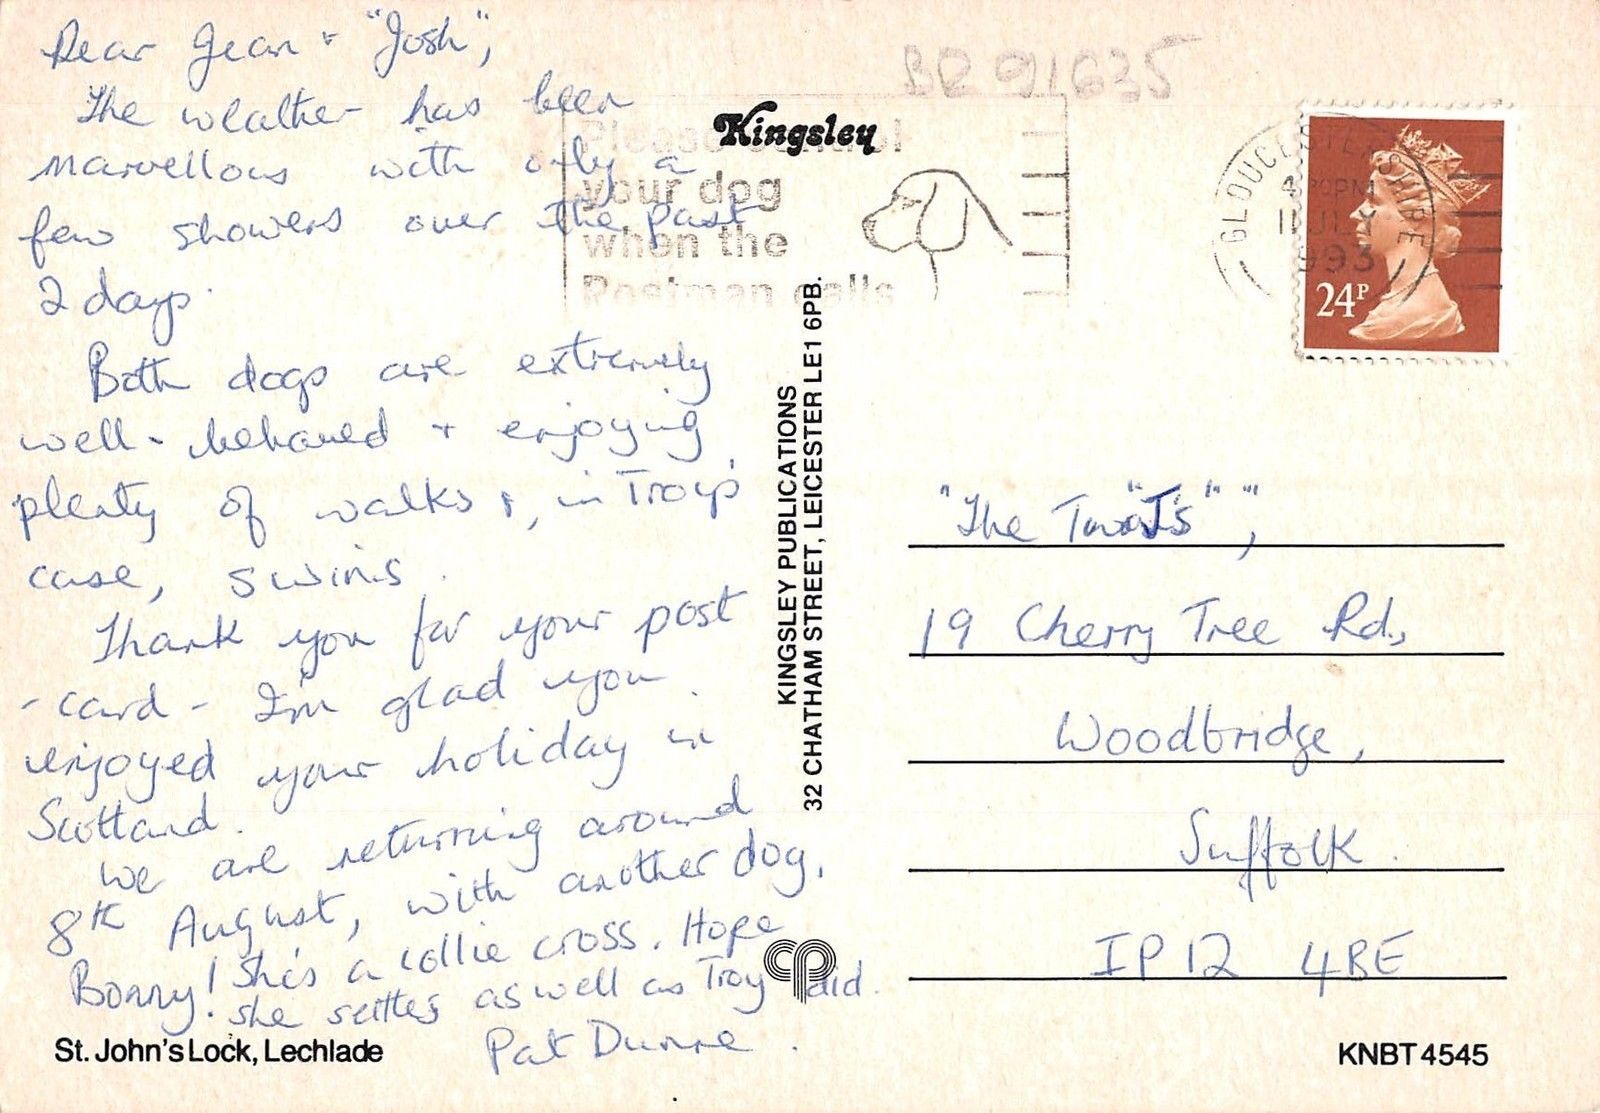 Dear Jean + "Josh",
The weather has been
marvellous with only a
few showers over the past
2 days.
Both dogs are extremely
well-behaved + enjoying
plenty of walks &, in Troy's
case, swims.
Thank you for your post
-card - I'm glad you
enjoyed your holiday in
Scotland.
We are returning around
8th August, with another dog,
Bonny! She's a collie cross. Hope
she settles as well as Troy did.
Pat Dunne.
St. John's Lock, Lechlade
BR 91635
Kingsley
Please control
your dog
when the
Postman calls
GLOUCESTERSHIRE
4.30PM
11 JLY
1993
24P
KINGSLEY PUBLICATIONS
32 CHATHAM STREET, LEICESTER LE1 6PB.
"The Two "J's"",
19 Cherry Tree Rd.,
Woodbridge,
Suffolk.
IP12 4BE
cp
KNBT 4545